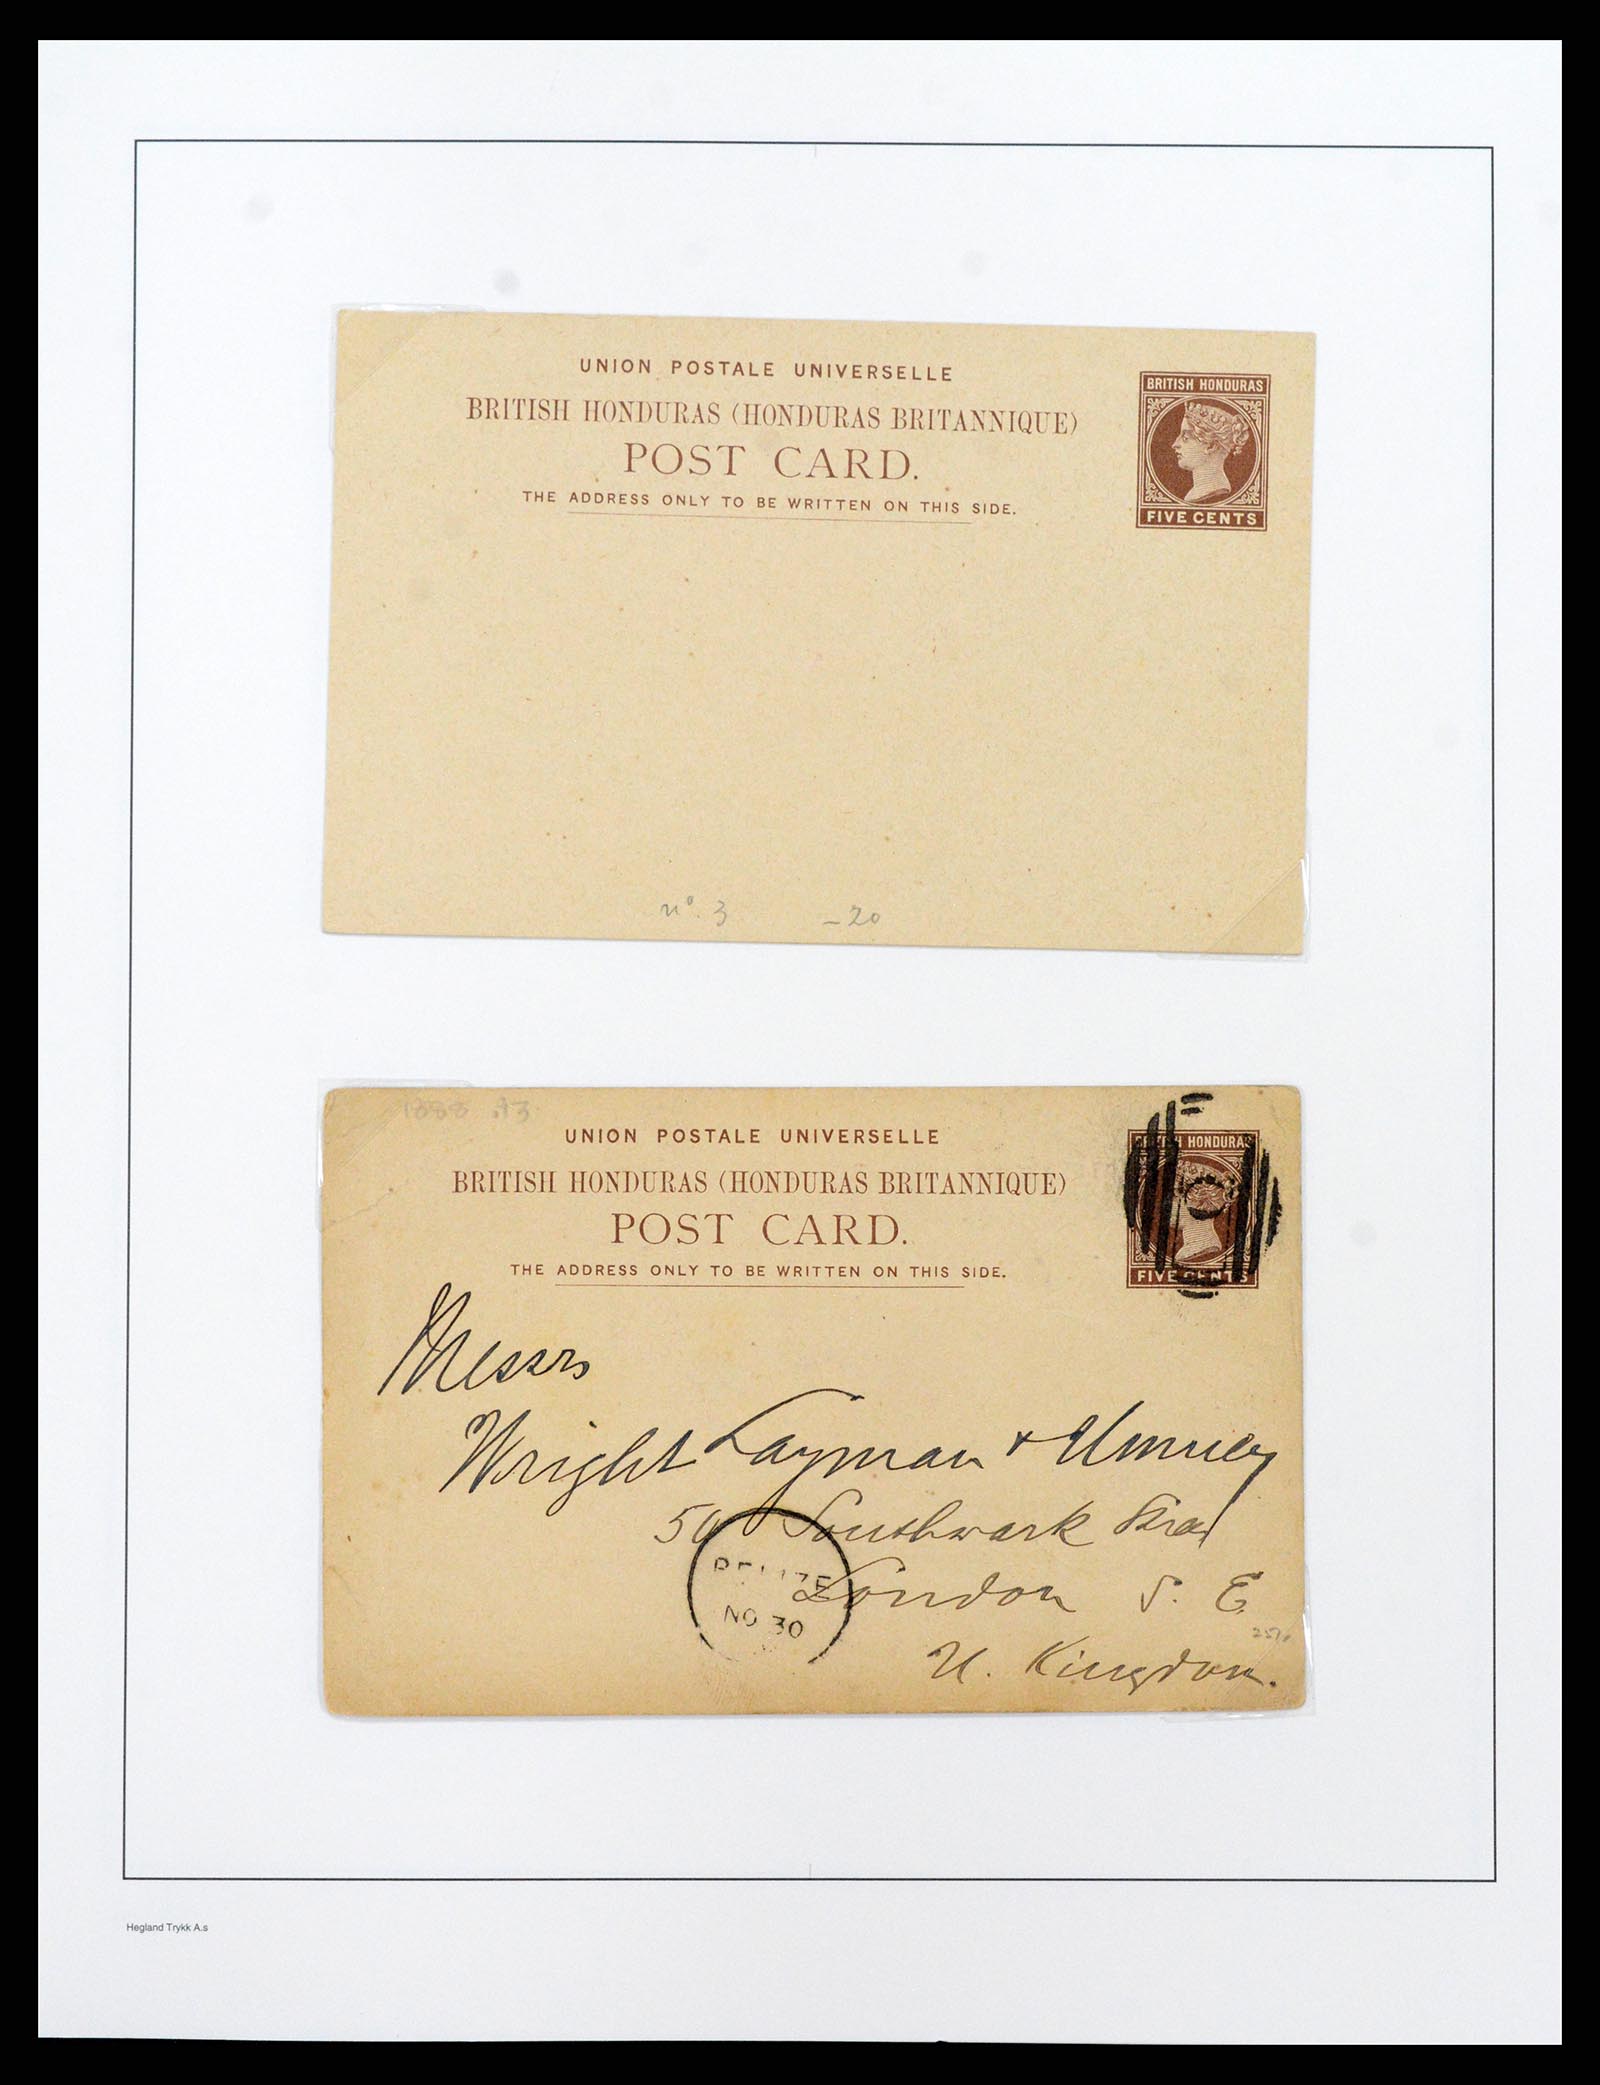 UNION POSTALE UNIVERSELLE
BRITISH HONDURAS (HONDURAS BRITANNIQUE)
POST CARD.
THE ADDRESS ONLY TO BE WRITTEN ON THIS SIDE.
BRITISH HONDURAS
FIVE CENTS
no. 3 - 20
1888 A3
UNION POSTALE UNIVERSELLE
BRITISH HONDURAS (HONDURAS BRITANNIQUE)
POST CARD.
THE ADDRESS ONLY TO BE WRITTEN ON THIS SIDE.
BRITISH HONDURAS
FIVE CENTS
Messrs
Wright Layman + Umney
50 Southwark
London S. E.
U. Kingdom.
BELIZE
NO 30
Hegland Trykk A.s